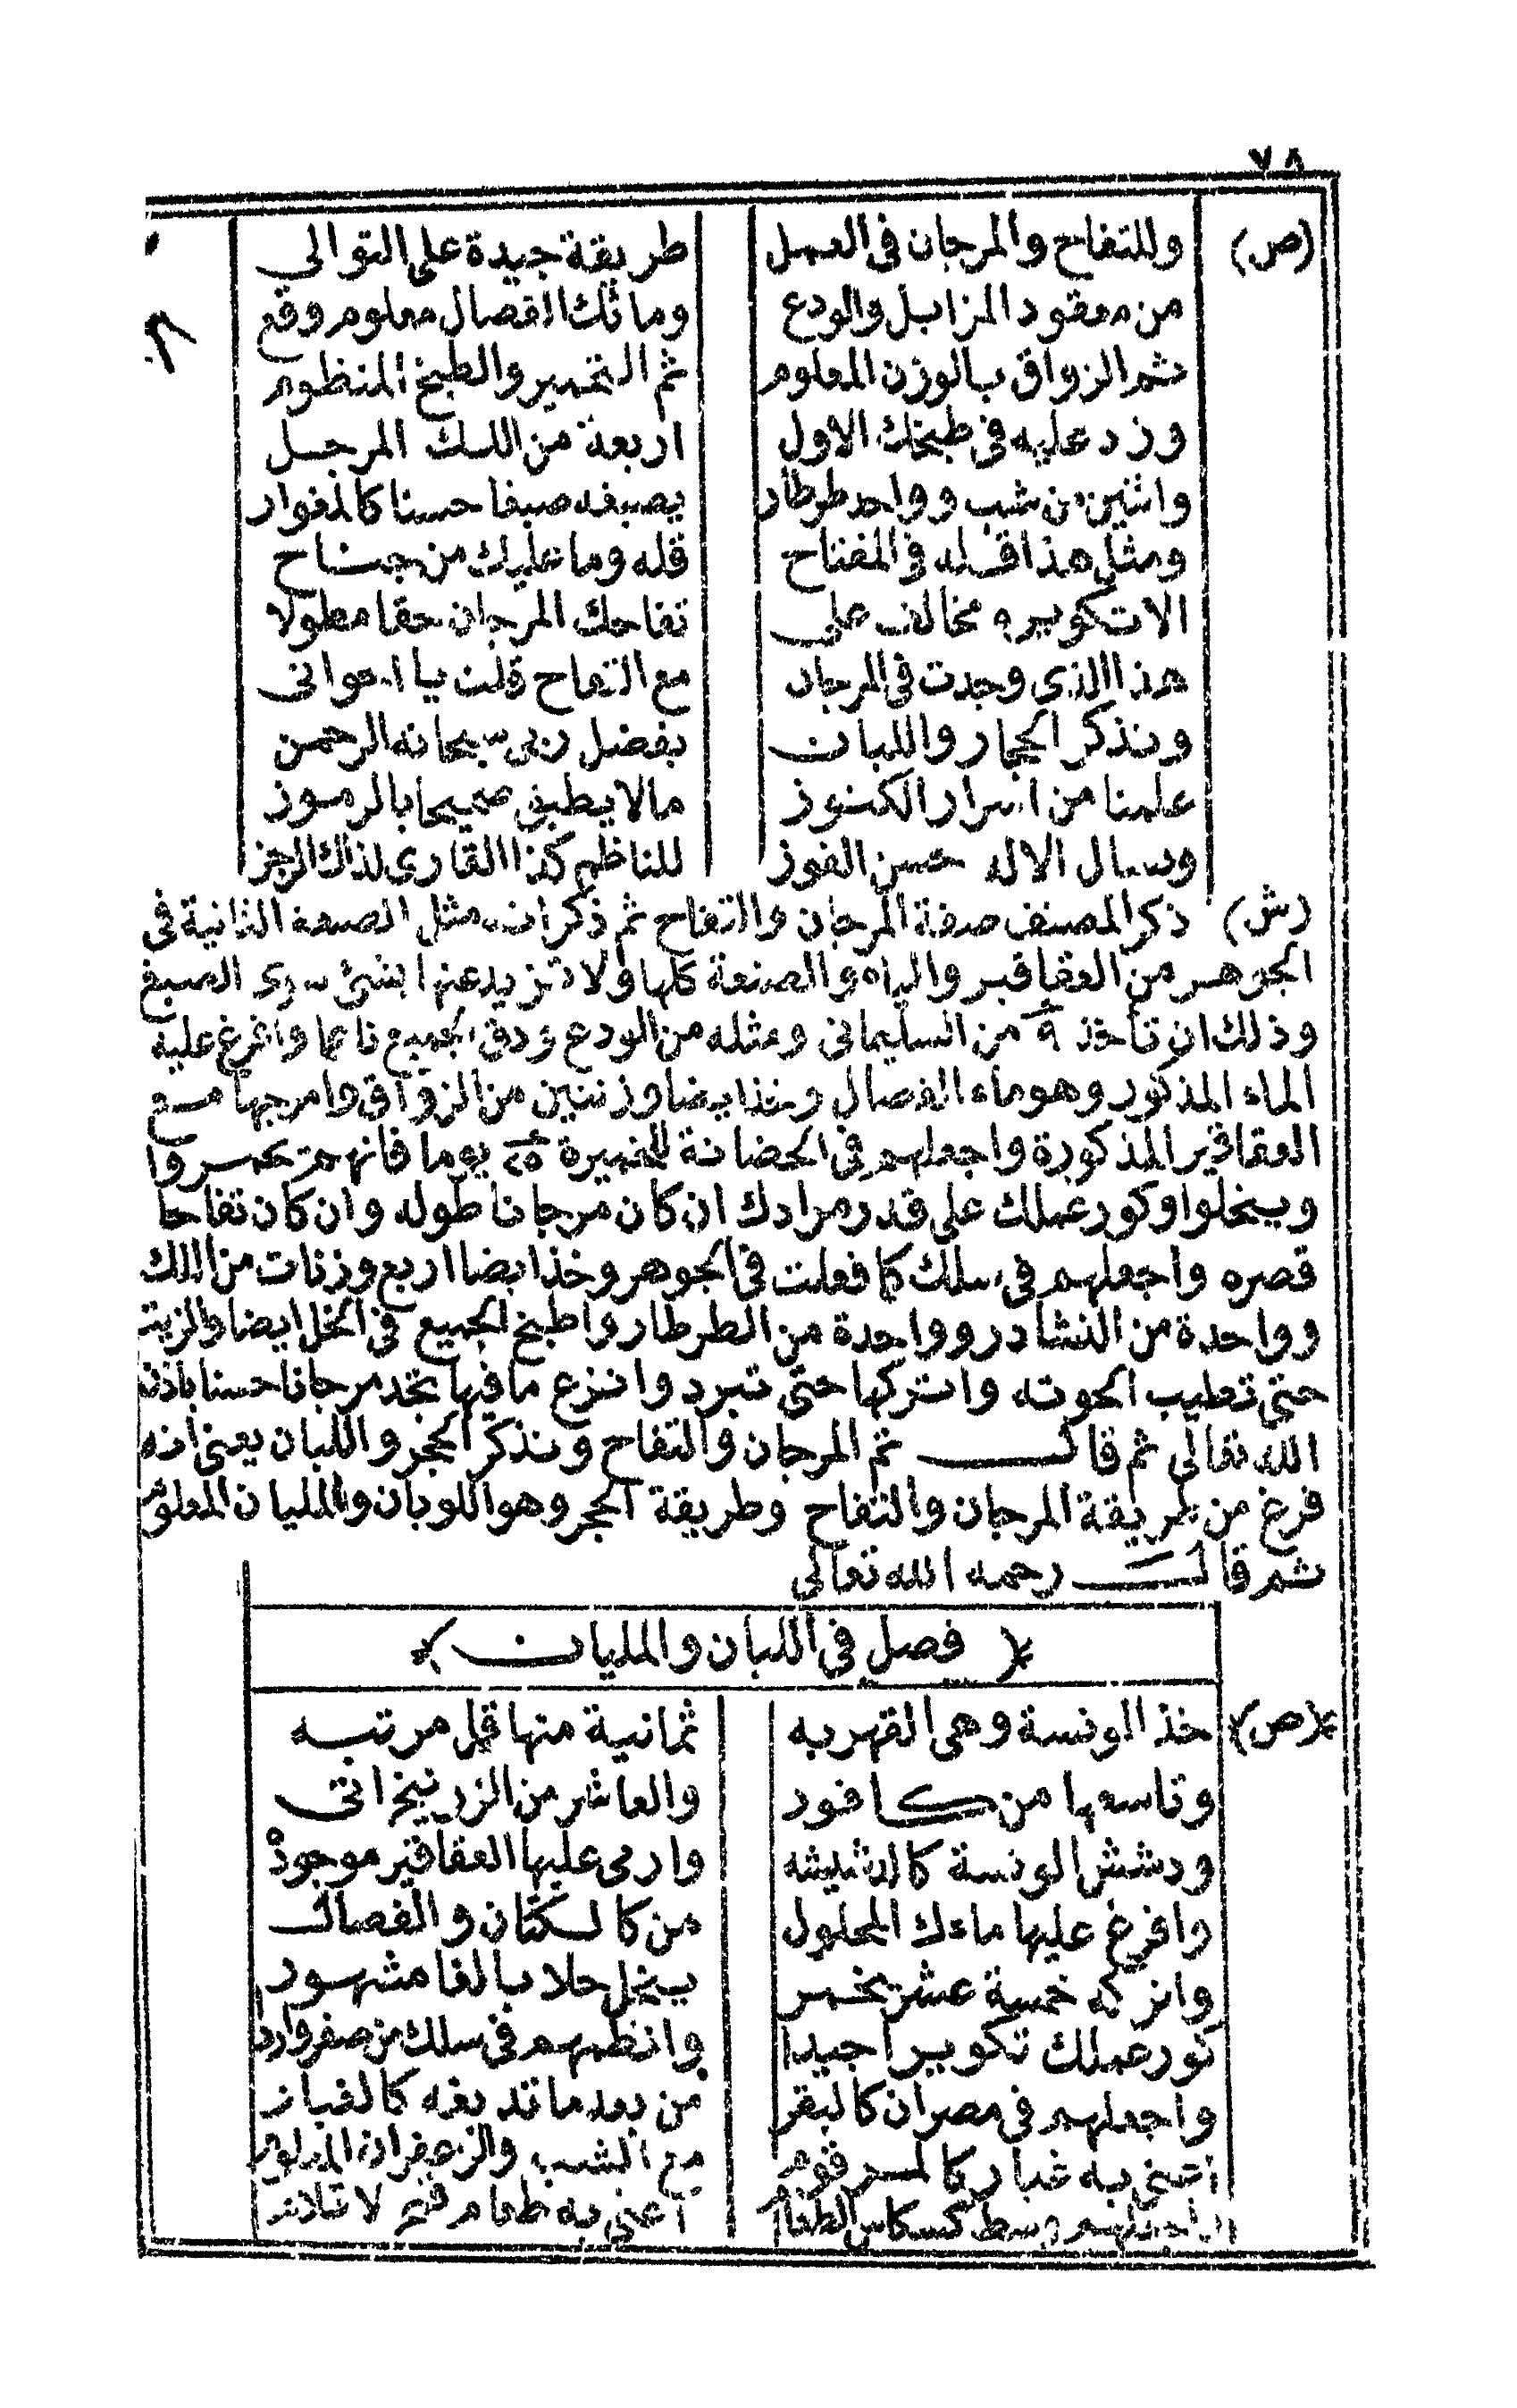 ٧٨
(ص) وللتفاح والمرجان فى العمل طريقة جيدة على التوالى
من معقود المزابل والودع وماءك الفصال معلوم وقع
ثم الزواق بالوزن المعلوم ثم التخمير والطبخ المنظوم
وزد عليه فى طبخك الاول اربعة من اللك المرجل
واثنين من شب وواحد طرطار يصبغه صبغا حسنا كالمغوار
ومثل هذا قله فى المفتاح قله وما عليك من جناح
الا تكويره مخالف على تفاحك المرجان حقا مطولا
هذا الذى وجدت فى المرجان مع التفاح قلت يا اخوانى
ونذكر الحجار واللبان بفضل ربى سبحانه الرحمن
علمنا من اسرار الكنوز مالا يطيق صحيحا بالرموز
ونسال الاله حسن الفوز للناظم كذا القارى لذاك الرجز
(ش) ذكر المصنف صفة المرجان والتفاح ثم ذكر انه مثل الصنعة الثانية فى
الجوهر من العقاقير والمياه والصنعة كلها ولا تزيد عنها بشئ سوى الصبغ
وذلك ان تأخذ ٩ من السليمانى ومثله من الودع ودق الجميع ناعما وافرغ عليه
الماء المذكور وهو ماء الفصال وخذ ايضا وزنتين من الزواق وامرجها مع
العقاقير المذكورة واجعلهم فى الحضانة للخميرة ٢٥ يوما فانهم يخمروا
وينحلوا وكور عملك على قدر مرادك ان كان مرجانا طوله وان كان تفاحا
قصره واجعلهم فى سلك كما فعلت فى الجوهر وخذ ايضا اربع وزنات من اللك
وواحدة من النشادر وواحدة من الطرطار واطبخ الجميع فى الخل ايضا والزيت
حتى تطيب الحوته واتركها حتى تبرد وانزع ما فيها تجد مرجانا حسنا باذن
الله تعالى ثم قال ثم المرجان والتفاح ونذكر الحجر واللبان يعنى انه
فرغ من طريقة المرجان والتفاح وطريقة الحجر وهو اللوبان والمليان المعلوم
ثم قال رحمه الله تعالى
فصل فى اللبان والمليان
(ص) خذ الونسة وهى القهربه ثمانية منها قل مرتبه
وتاسعها من كافور والعاشر من الزرنيخ اتى
ودشش الونسة كالدشيشه وارمى عليها العقاقير موجوده
وافرغ عليها ماءك المحلول من كالكتان والفصال
واتركه خمسة عشر يخمر ينحل حلا بالغا مشهور
كور عملك تكويرا جيدا وانظمهم فى سلك من صفر واردا
واجعلهم فى مصران كالبقر من بعد ما تدبغه كالغبار
اعنى به غبار كالمرقوم مع الشب والزعفران المعلوم
واجعلهم وسط كسكاس الطعام اعنى به طعام قمح لا تلام